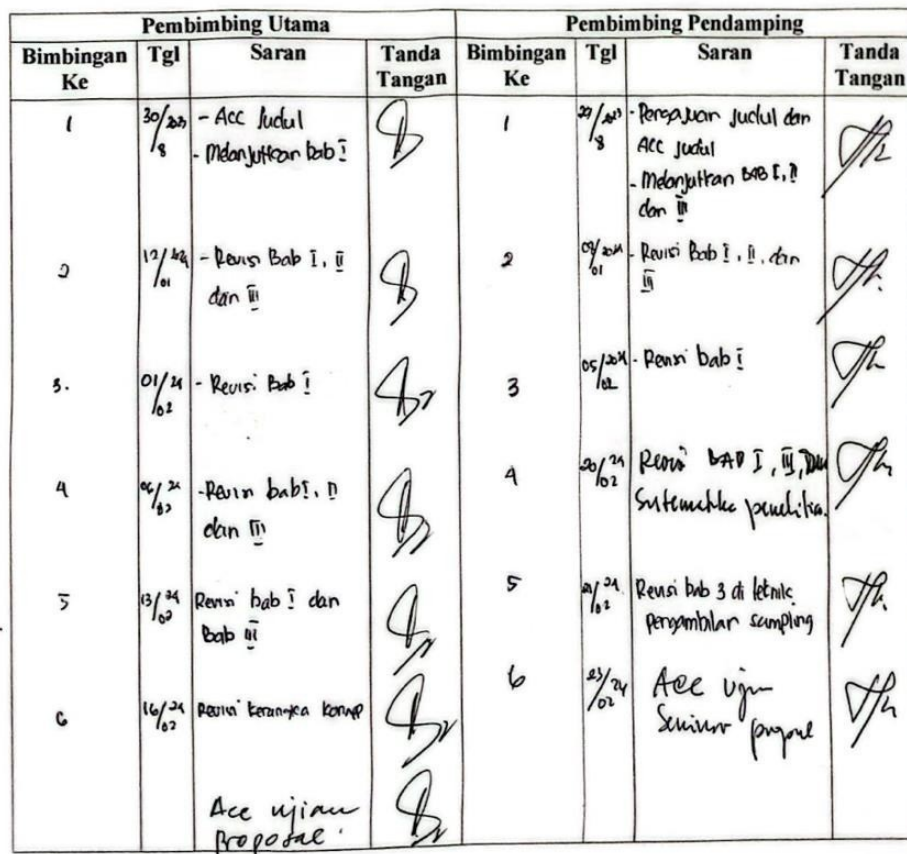 Pembimbing Utama Pembimbing Pendamping
Bimbingan Ke Tgl Saran Tanda Tangan Bimbingan Ke Tgl Saran Tanda Tangan
1 30/2023 8 - Acc Judul
- Melanjutkan bab I
1 29/2023 8 - Pengajuan Judul dan
Acc Judul
- Melanjutkan BAB I, II
dan III
2 12/2024 01 - Revisi Bab I, II
dan III
2 09/2024 01 - Revisi Bab I, II, dan
III
3. 01/24 02 - Revisi Bab I
3 05/2024 02 - Revisi bab I
4 06/24 02 - Revisi bab I, II
dan III
4 20/24 02 Revisi BAB I, III, Dan
Sistematika penelitian.
5 13/24 02 Revisi bab I dan
Bab III
5 /24 02 Revisi bab 3 di teknik
pengambilan sampling
6 16/24 02 Revisi kerangka konsep
6 23/24 02 Acc ujian
Seminar proposal
Acc ujian
Proposal.